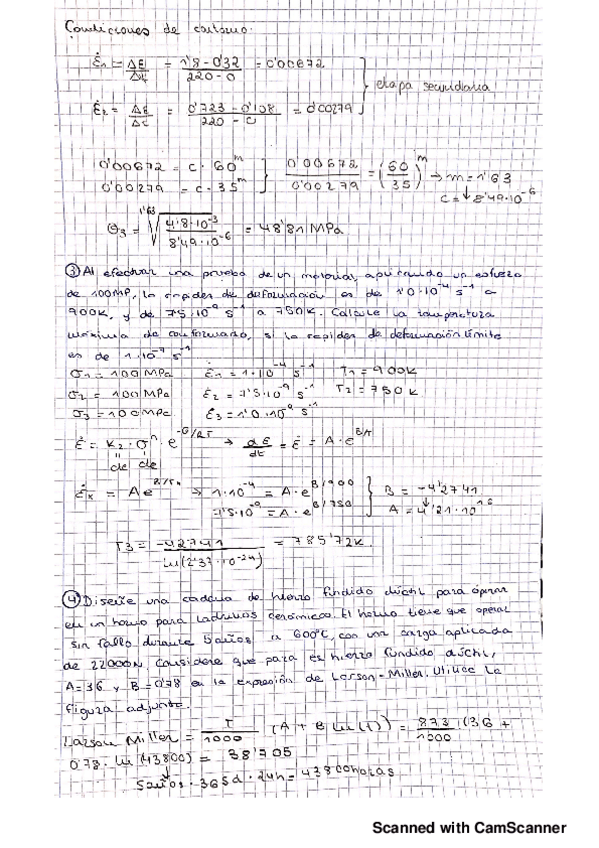 Condiciones de contorno.
Ė1 = ΔE/Δt = 1'8 - 0'32 / 220 - 0 = 0'00672
Ė2 = ΔE/Δt = 0'723 - 0'108 / 220 - 0 = 0'00279 } etapa secundaria
0'00672 = c · 60^m
0'00279 = c · 35^m } 0'00672 / 0'00279 = (60/35)^m → m = 1'63
c = 8'49·10^-6
σ3 = 1'63√(4'8·10^-3 / 8'49·10^-6) = 48'81 MPa
③ Al efectuar una prueba de un material, aplicando un esfuerzo
de 100MP, la rapidez de deformación es de 1'0·10^-4 s^-1 a
900K, y de 7'5·10^-9 s^-1 a 750K. Calcule la temperatura
máxima de conformado, si la rapidez de deformación límite
es de s^-1
σ1 = 100 MPa Ė1 = 1·10^-4 s^-1 T1 = 900K
σ2 = 100 MPa Ė2 = 7'5·10^-9 s^-1 T2 = 750K
σ3 = 100 MPa Ė3 = s^-1
Ė = K2 · σ^n · e^-Q/RT → dE/dt = Ė = A · e
cte cte
→ 1·10^-4 = A · e^B/900
7'5·10^-9 = A · e^B/750 } B = -42741
A = 4'21·10^16
T3 = -42741 / ln(2'37·10^-24) = 785'72K
④ Diseñe una cadena de hierro fundido dúctil para operar
en un horno para ladrillos cerámicos. El horno tiene que operar
sin fallo durante 5 años a 600°C, con una carga aplicada
de 22000N. Considere que para es hierro fundido dúctil,
A=36 y B=0'78 en la expresión de Larson-Miller. Utilice la
figura adjunta.
Larson Miller = T/1000 (A + B ln(t)) = 873/1000 (36 +
0'78 · ln(43800) = 38'705
5 años · 365d · 24h = 43800 horas
Scanned with CamScanner